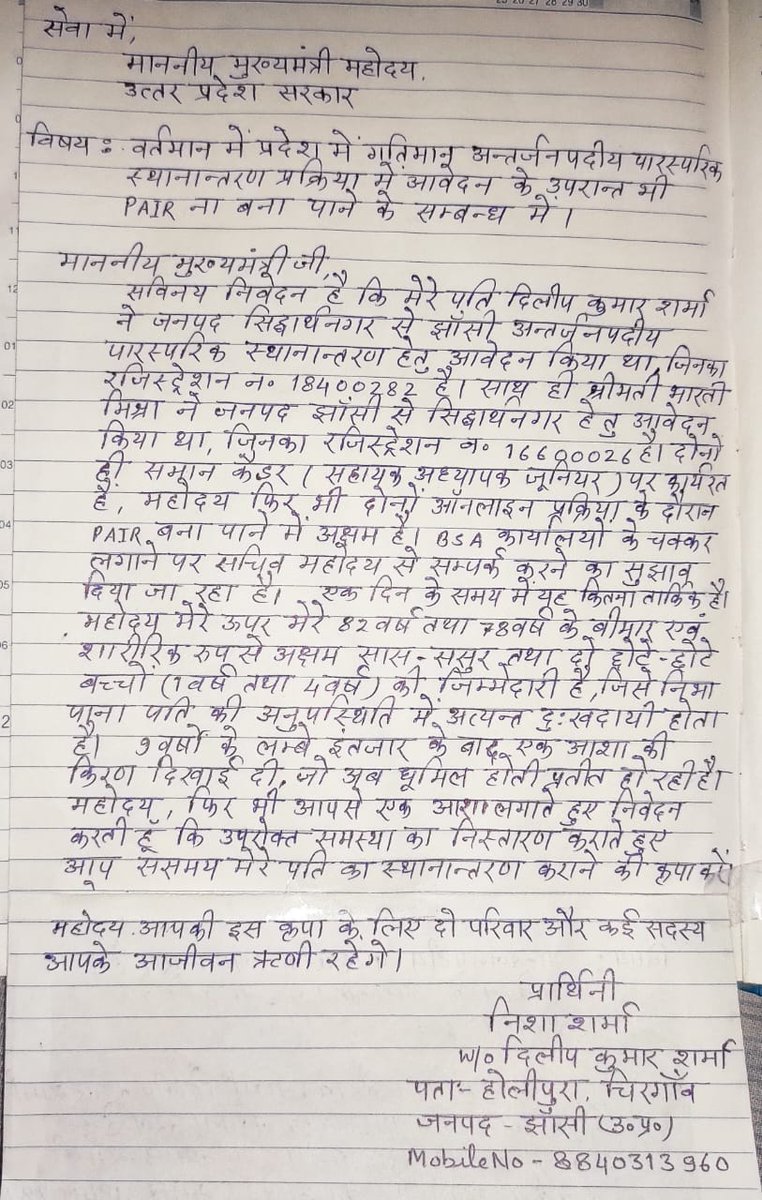 25 26 27 28 29 30
सेवा में,
माननीय मुख्यमंत्री महोदय,
उत्तर प्रदेश सरकार
विषय : वर्तमान में प्रदेश में गतिमान अन्तर्जनपदीय पारस्परिक
स्थानान्तरण प्रक्रिया में आवेदन के उपरान्त भी
PAIR ना बना पाने के सम्बन्ध में।
माननीय मुख्यमंत्री जी,
सविनय निवेदन है कि मेरे पति दिलीप कुमार शर्मा
ने जनपद सिद्धार्थनगर से झाँसी अन्तर्जनपदीय
पारस्परिक स्थानान्तरण हेतु आवेदन किया था, जिनका
रजिस्ट्रेशन न० 18400282 है। साथ ही श्रीमती भारती
मिश्रा ने जनपद झाँसी से सिद्धार्थनगर हेतु आवेदन
किया था, जिनका रजिस्ट्रेशन न० 16600026 है। दोनो
ही समान कैडर (सहायक अध्यापक जूनियर) पर कार्यरत
है, महोदय फिर भी दोनों ऑनलाइन प्रक्रिया के दौरान
PAIR बना पाने में अक्षम है। BSA कार्यालयों के चक्कर
लगाने पर सचिव महोदय से सम्पर्क करने का सुझाव
दिया जा रहा है। एक दिन के समय में यह कितना तार्किक है।
महोदय मेरे ऊपर मेरे 82 वर्ष तथा 78 वर्ष के बीमार एवं
शारीरिक रुप से अक्षम सास-ससुर तथा दो छोटे-छोटे
बच्चों (1 वर्ष तथा 4 वर्ष) की जिम्मेदारी है, जिसे निभा
पाना पति की अनुपस्थिति में अत्यन्त दु:खदायी होता
है। 9 वर्षों के लम्बे इंतजार के बाद एक आशा की
किरण दिखाई दी, जो अब धूमिल होती प्रतीत हो रही है।
महोदय, फिर भी आपसे एक आशा लगाते हुए निवेदन
करती हूँ कि उपरोक्त समस्या का निस्तारण कराते हुए
आप ससमय मेरे पति का स्थानान्तरण कराने की कृपा करें।
महोदय आपकी इस कृपा के लिए दो परिवार और कई सदस्य
आपके आजीवन ऋणी रहेगे।
प्रार्थिनी
निशा शर्मा
W/o दिलीप कुमार शर्मा
पता- होलीपुरा, चिरगाँव
जनपद - झाँसी (उ०प्र०)
Mobile No - 8840313960